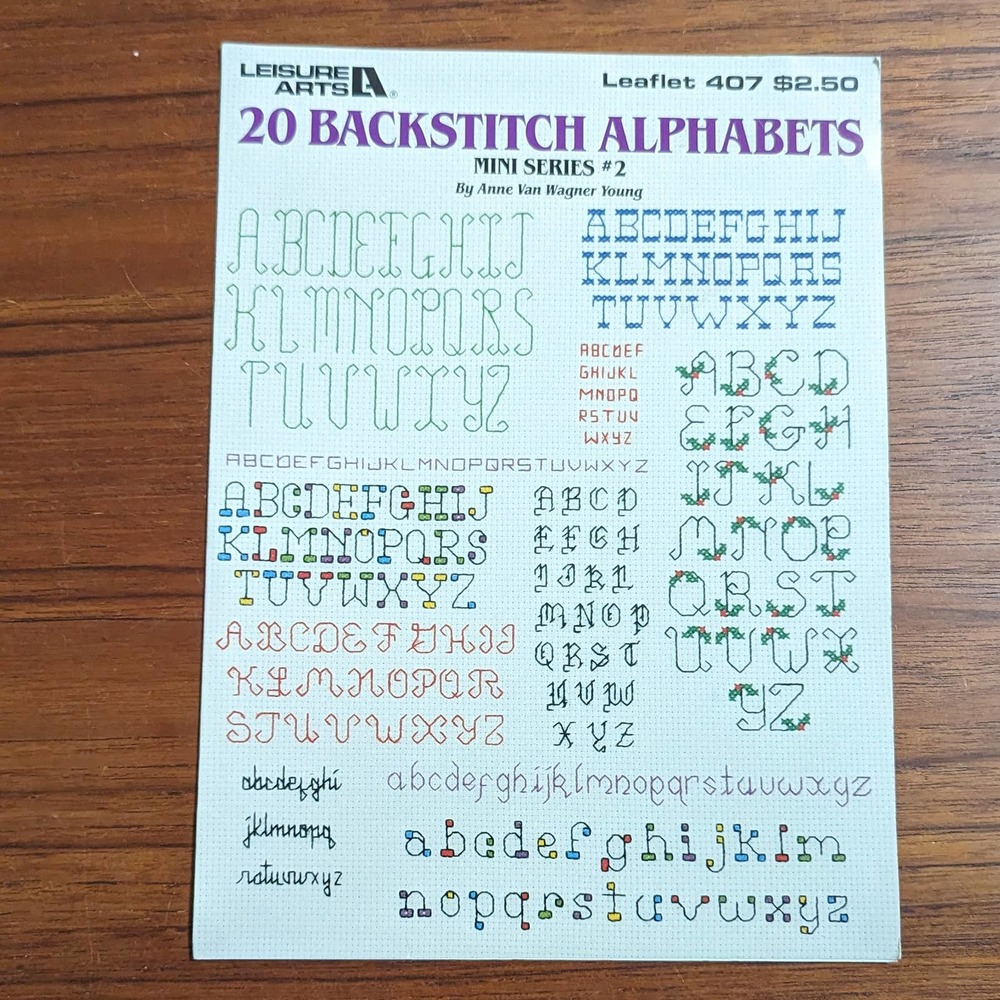 LEISURE ARTS
Leaflet 407 $2.50
20 BACKSTITCH ALPHABETS
MINI SERIES #2
By Anne Van Wagner Young
ABCDEFGHIJ
KLMNOPQRS
TUVWXYZ
ABCDEFGHIJ
KLMNOPQRS
TUVWXYZ
ABCDEF
GHIJKL
MNOPQ
RSTUV
WXYZ
ABCD
EFGH
IJKL
MNOP
QRST
UVWX
YZ
ABCDEFGHIJKLMNOPQRSTUVWXYZ
ABCDEFGHIJ
KLMNOPQRS
TUVWXYZ
ABCD
EFGH
IJKL
MNOP
QRST
UVW
XYZ
ABCDEFGHIJ
KLMNOPQR
STUVWXYZ
abcdefghi
jklmnopq
rstuvwxyz
abcdefghijklmnopqrstuvwxyz
abcdefghijklm
nopqrstuvwxyz